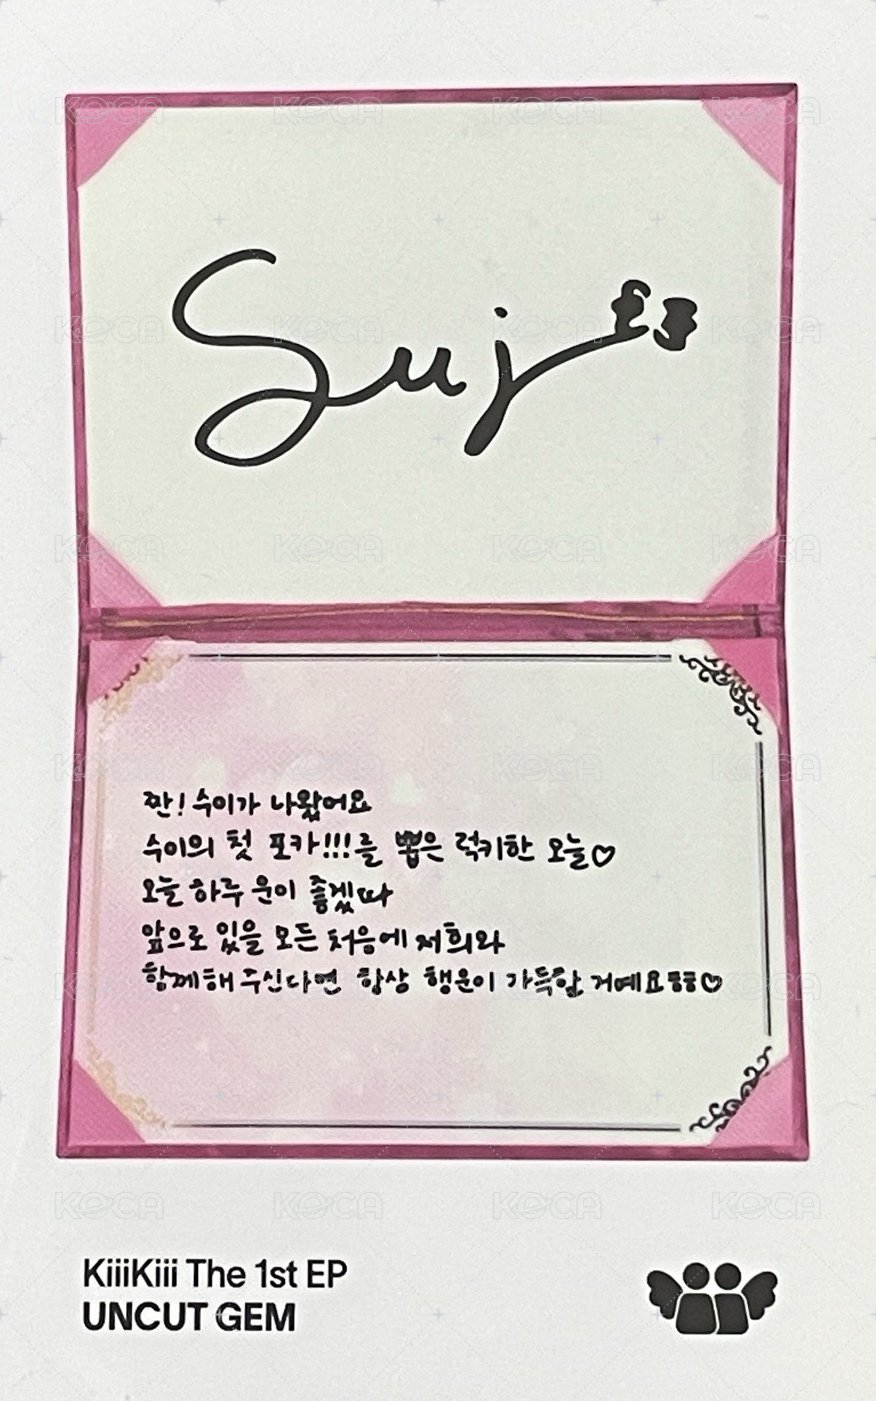 Sui
짠! 수이가 나왔어요
수이의 첫 포카!!!를 뽑은 럭키한 오늘♡
오늘 하루 운이 좋겠따
앞으로 있을 모든 처음에 저희와
함께해 주신다면 항상 행운이 가득할 거예요ㅎㅎ♡
KiiiKiii The 1st EP
UNCUT GEM
KOCA